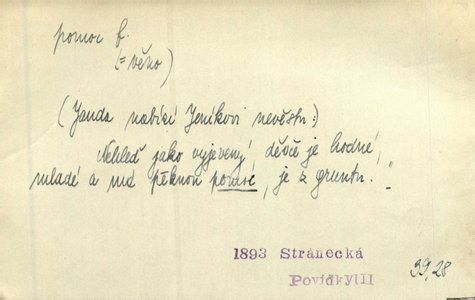 pomoc f.
(= věno)
(Janda nabízí Jeníkovi nevěstu:)
Nehleď jako vyjevený, děvče je hodné,
mladé a má pěknou pomoc, je z gruntu."
1893 Stránecká
Povídky II
39,28